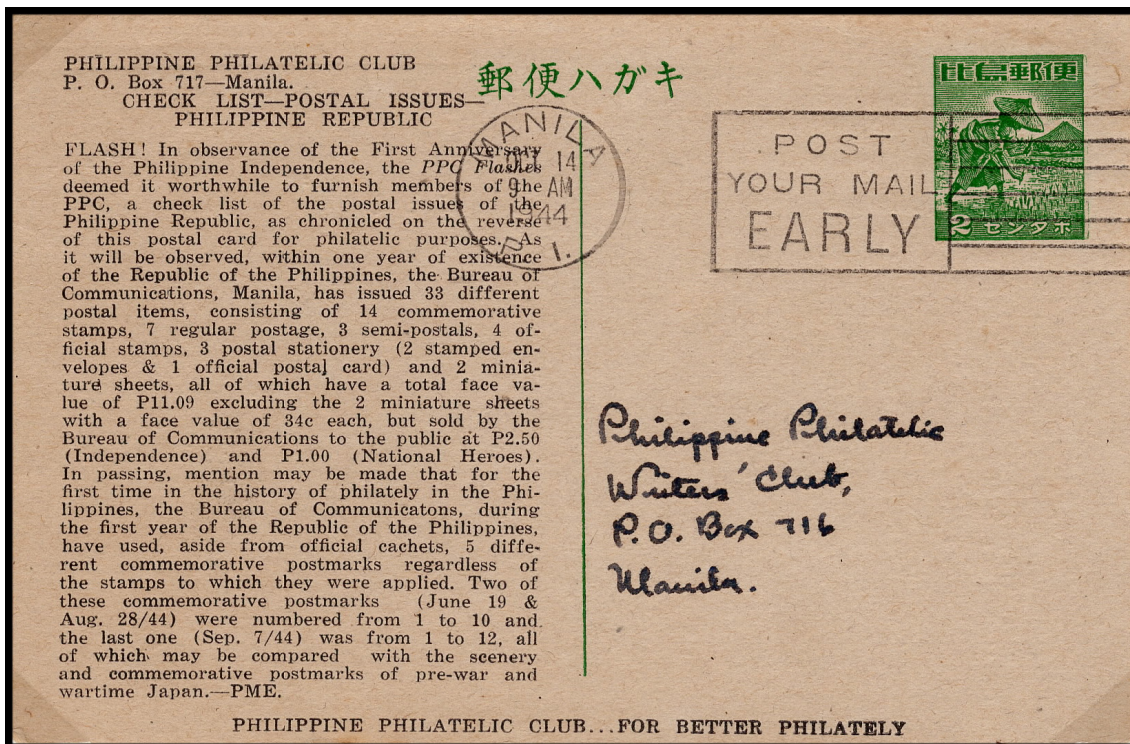 PHILIPPINE PHILATELIC CLUB
P. O. Box 717—Manila.
CHECK LIST—POSTAL ISSUES—
PHILIPPINE REPUBLIC
FLASH! In observance of the First Anniversary
of the Philippine Independence, the PPC Flashes
deemed it worthwhile to furnish members of the
PPC, a check list of the postal issues of the
Philippine Republic, as chronicled on the reverse
of this postal card for philatelic purposes. As
it will be observed, within one year of existence
of the Republic of the Philippines, the Bureau of
Communications, Manila, has issued 33 different
postal items, consisting of 14 commemorative
stamps, 7 regular postage, 3 semi-postals, 4 of-
ficial stamps, 3 postal stationery (2 stamped en-
velopes & 1 official postal card) and 2 minia-
ture sheets, all of which have a total face va-
lue of P11.09 excluding the 2 miniature sheets
with a face value of 34c each, but sold by the
Bureau of Communications to the public at P2.50
(Independence) and P1.00 (National Heroes).
In passing, mention may be made that for the
first time in the history of philately in the Phi-
lippines, the Bureau of Communicatons, during
the first year of the Republic of the Philippines,
have used, aside from official cachets, 5 diffe-
rent commemorative postmarks regardless of
the stamps to which they were applied. Two of
these commemorative postmarks (June 19 &
Aug. 28/44) were numbered from 1 to 10 and
the last one (Sep. 7/44) was from 1 to 12, all
of which may be compared with the scenery
and commemorative postmarks of pre-war and
wartime Japan.—PME.
郵便ハガキ
MANILA
OCT 14
9 AM
1944
P. I.
POST
YOUR MAIL
EARLY
比島郵便
2 センタボ
Philippine Philatelic
Writers' Club,
P.O. Box 716
Manila.
PHILIPPINE PHILATELIC CLUB...FOR BETTER PHILATELY